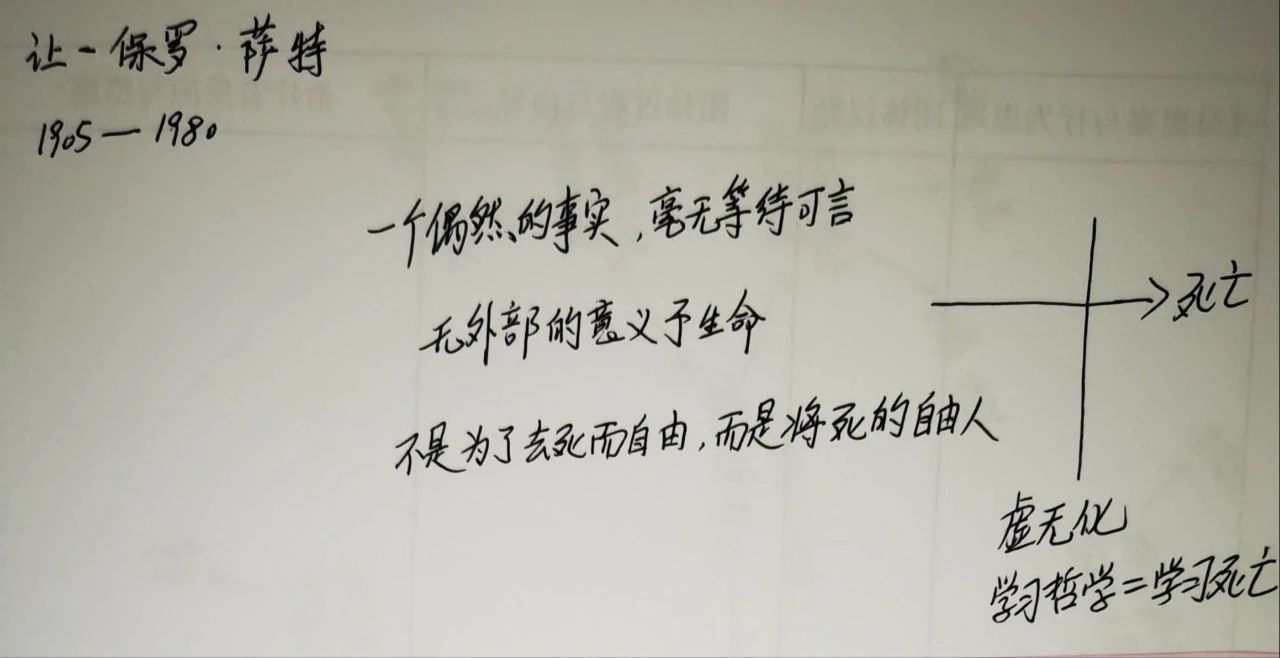 让-保罗·萨特
1905—1980
一个偶然的事实,毫无等待可言
无外部的意义予生命
不是为了去死而自由,而是将死的自由人
死亡
虚无化
学习哲学=学习死亡